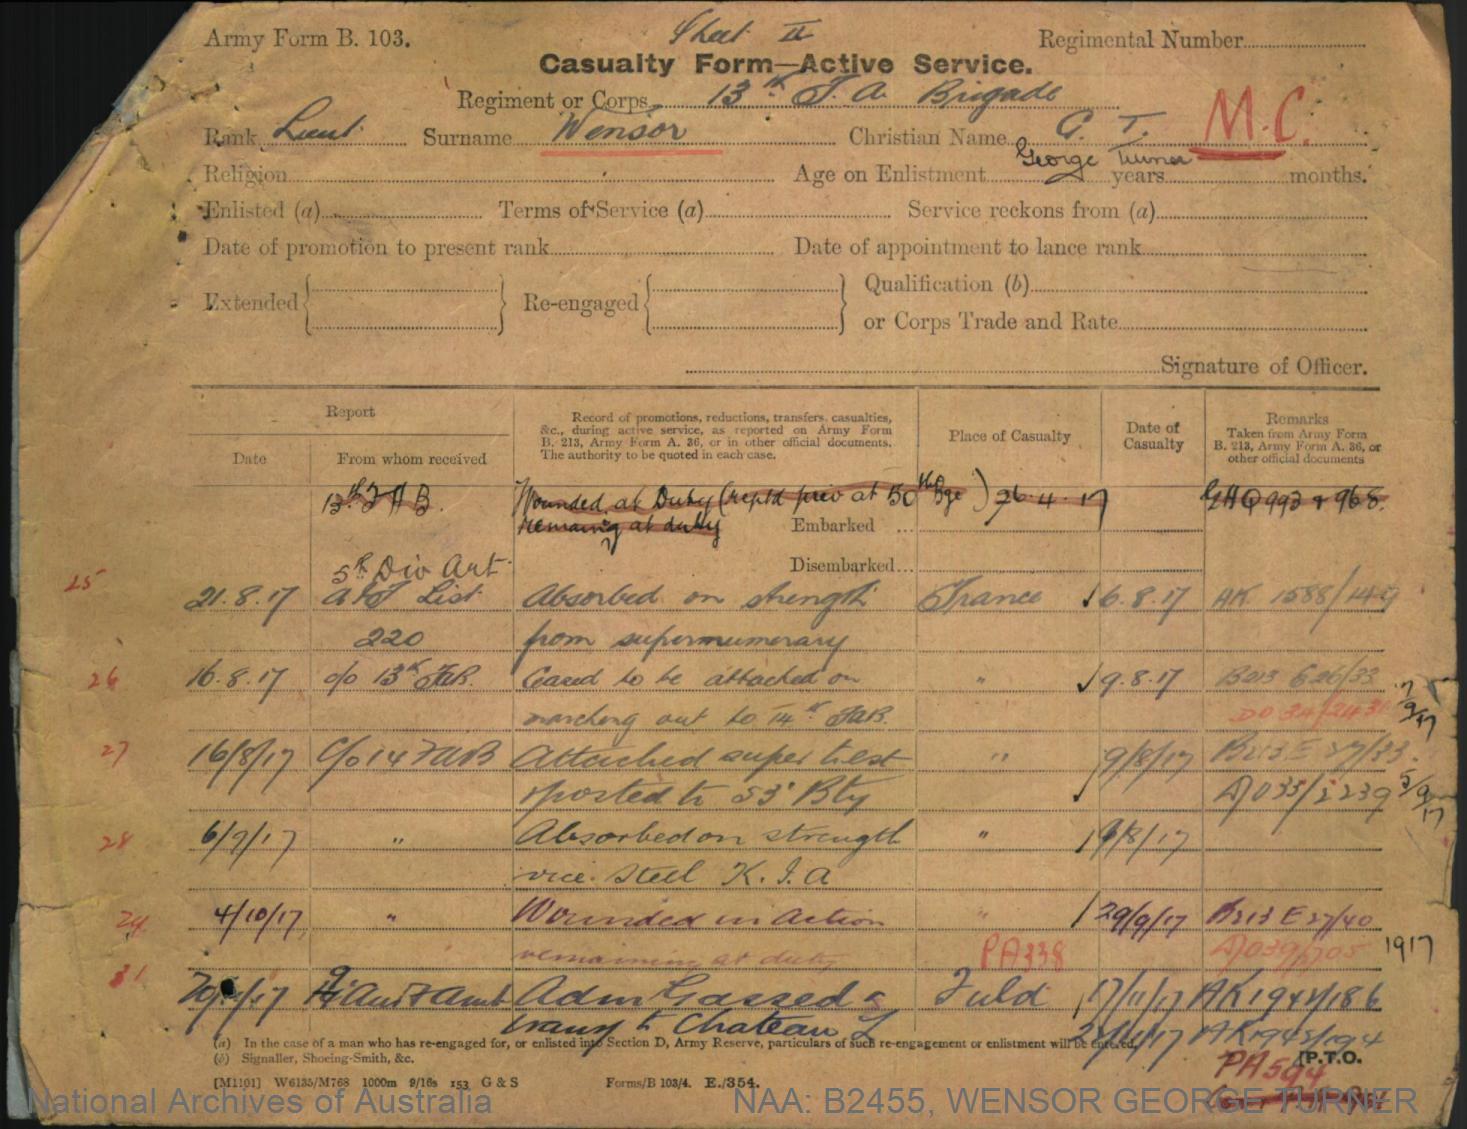 Army Form B. 103.
Sheet II
Regimental Number
Casualty Form—Active Service.
Regiment or Corps 13th F. A. Brigade
Rank Lieut Surname Wensor Christian Name G. T. M.C.
George Turner
Religion Age on Enlistment years months.
Enlisted (a) Terms of Service (a) Service reckons from (a)
Date of promotion to present rank Date of appointment to lance rank
Extended Re-engaged Qualification (b)
or Corps Trade and Rate
Signature of Officer.
Report
Date
From whom received
Record of promotions, reductions, transfers, casualties,
&c., during active service, as reported on Army Form
B. 213, Army Form A. 36, or in other official documents.
The authority to be quoted in each case.
Place of Casualty
Date of
Casualty
Remarks
Taken from Army Form
B. 213, Army Form A. 36, or
other official documents
13th F A B. Wounded at Duty (reptd prev at 50th Bge) 26.4.17 GHQ 993 & 968.
remaing at duty Embarked ...
5th Div Art Disembarked...
25 21.8.17 List Absorbed on strength France 6.8.17 AK 1588/149
220 from supernumerary
26 16.8.17 c/o 13th FAB. Ceased to be attached on " 9.8.17 B213 E26/33
marching out to 14th FAB. DO 34/2431
27 16/8/17 C/o 14 FAB Attached super to est " 9/8/17 B213 E 27/33.
& posted to 53rd Bty DO35/2239
28 6/9/17 " Absorbed on strength " 9/8/17
vice Steel K. I. A
4/10/17 " Wounded in Action " 29/9/17 B213 E 27/40
remaining at duty PA338 1917
31 Aust F Amb Adm Gassed & Field 17/11/17 AK1942/186
trans to Chateau L AK1945/194
(a) In the case of a man who has re-engaged for, or enlisted into Section D, Army Reserve, particulars of such re-engagement or enlistment will be entered.
(b) Signaller, Shoeing-Smith, &c.
[P.T.O.
PA594
[M1101] W6135/M768 1000m 9/16s 153 G & S Forms/B 103/4. E./354.
National Archives of Australia NAA: B2455, WENSOR GEORGE TURNER